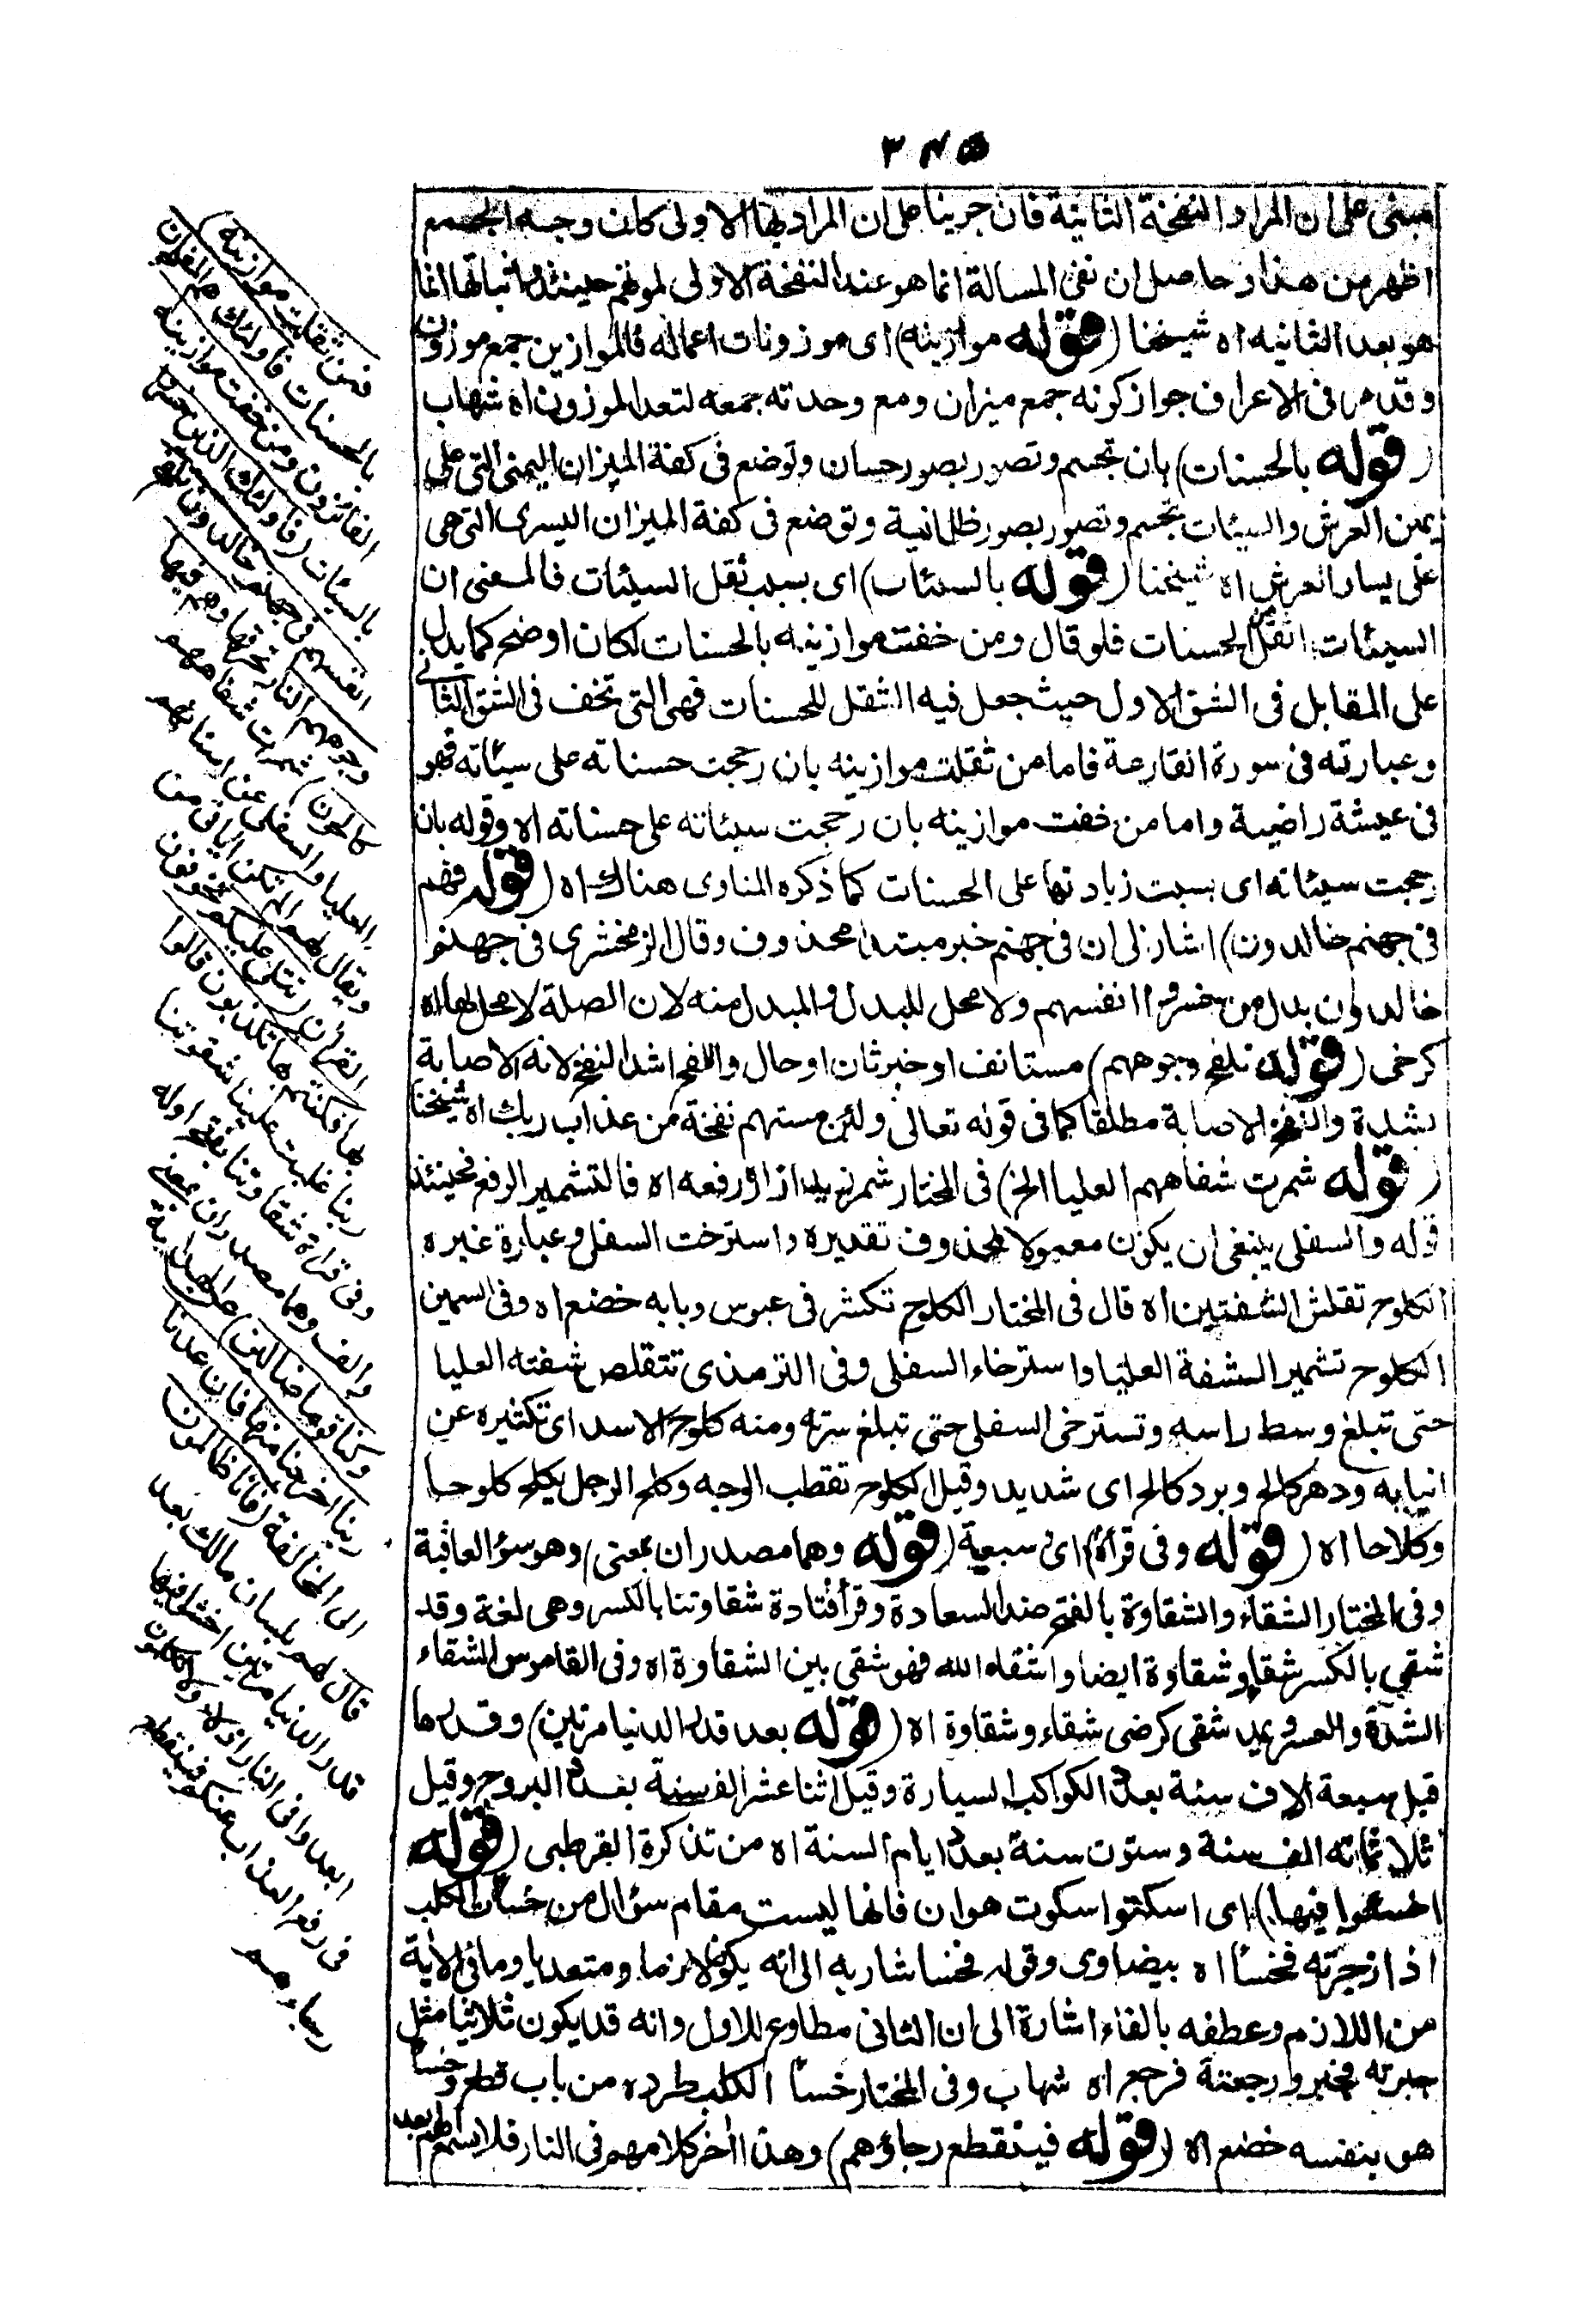 ٣٧٥
مبنى على ان المراد النفخة الثانية فان جرينا على ان المراد بها الاولى كان وجه الجمع
اظهر من هذا وحاصل ان نفى المسالة انما هو عند النفخة الاولى لموتهم حينئذ واثباتها انما
هو بعد الثانيه اه شيخنا (قوله موازينه) اى موزونات اعماله فالموازين جمع موزون
وقدم فى الاعراف جواز كونه جمع ميزان ومع وحدته جمعه لتعدد الموزون اه شهاب
(قوله بالحسنات) بان تجسم وتصور بصور حسان وتوضع فى كفة الميزان اليمنى التى على
يمين العرش والسيئات تجسم وتصور بصور ظلمانية وتوضع فى كفة الميزان اليسرى التى هى
على يسار العرش اه شيخنا (قوله بالسيئات) اى بسبب ثقل السيئات فالمعنى ان
السيئات اثقل من الحسنات فلو قال ومن خفت موازينه بالحسنات لكان اوضح كما يدل
على المقابل فى الشق الاول حيث جعل فيه الثقل للحسنات فهى التى تخف فى الشق الثانى
وعبارته فى سورة القارعة فاما من ثقلت موازينه بان رجحت حسناته على سيئاته فهو
فى عيشة راضية واما من خفت موازينه بان رجحت سيئاته على حسناته اه وقوله بان
رجحت سيئاته اى بسبت زيادتها على الحسنات كما ذكره المناوى هناك اه (قوله فهم
فى جهنم خالدون) اشار الى ان فى جهنم خبر مبتدا محذوف وقال الزمخشرى فى جهنم
خالدون بدل من خسروا انفسهم ولا محل للبدل والمبدل منه لان الصلة لا محل لها اه
كرخى (قوله تلفح وجوههم) مستانف او خبر ثان او حال واللفح اشد النفح لانه الاصابة
بشدة والنفح الاصابة مطلقا كما فى قوله تعالى ولئن مستهم نفحة من عذاب ربك اه شيخنا
(قوله شمرت شفاههم العليا الخ) فى المختار شمر يد ازاره رفعه اه فالتشمير الرفع فحينئذ
قوله والسفلى ينبغى ان يكون معمولا لمحذوف تقديره واسترخت السفلى وعبارة غيره
الكلوح تقلش الشفتين اه قال فى المختار الكلوح تكشر فى عبوس وبابه خضع اه وفى السمين
الكلوح تشمير الشفة العليا واسترخاء السفلى وفى الترمذى تتقلص شفته العليا
حتى تبلغ وسط راسه وتسترخى السفلى حتى تبلغ سرته ومنه كلوح الاسد اى تكثيره عن
انيابه ودهر كالح وبرد كالح اى شديد وقيل الكلوح تقطب الوجه وكلح الرجل يكلح كلوحا
وكلاحا اه (قوله وفى قراة) اى سبعية (قوله وهما مصدران بمعنى) وهو سؤ العاقبة
وفى المختار الشقاء والشقاوة بالفتح ضد السعادة وقرأ قتادة شقاوتنا بالكسر وهى لغة وقد
شقى بالكسر شقاء وشقاوة ايضا واشقاه الله فهو شقى بين الشقاوة اه وفى القاموس الشقاء
الشدة والعسر ويمد شقى كرضى شقاء وشقاوة اه (قوله بعد قدر الدنيا مرتين) وقدرها
قيل سبعة الاف سنة بعدد الكواكب السيارة وقيل اثنا عشر الف سنة بعدد البروج وقيل
ثلاثمائه الف سنة وستون سنة بعدد ايام السنة اه من تذكرة القرطبى (قوله
اخسئوا فيها) اى اسكتوا سكوت هوان فانها ليست مقام سؤال من خسات الكلب
اذا زجرته فخسأ اه بيضاوى وقوله فخسا اشار به الى انه يكون لازما ومتعديا وما فى الاية
من اللازم وعطفه بالفاء اشارة الى ان الثانى مطاوع للاول وانه قد يكون ثلاثيا مثل
جبرته فجبر ورجعته فرجع اه شهاب وفى المختار خسأ الكلب طرده من باب قطع وخسأ
هو بنفسه خضع اه (قوله فينقطع رجاؤهم) وهذا اخر كلامهم فى النار فلا يسمع لهم بعد
فمن ثقلت موازينه)
بالحسنات فاولئك هم المفلحون
الفائزون ومن خفت موازينه
بالسيئات (فاولئك الذين خسروا
انفسهم فى جهنم خالدون تلفح
وجوههم النار تحرقها وهم فيها
كالحون) شمرت شفاههم
العليا والسفلى عن اسنانهم
ويقال لهم الم تكن اياتى من
القرآن (تتلى عليكم) تخوفون
بها فكنتم بها تكذبون قالوا
ربنا غلبت علينا شقوتنا
وفى قراة شقاوتنا بفتح اوله
والف وهما مصدران بمعنى
وكنا قوما ضالين) عن الهداية
ربنا اخرجنا منها فان عدنا
الى المخالفة (فانا ظالمون
قال لهم بلسان مالك بعد
قدر الدنيا مرتين اخسئوا فيها
ابعدوا فى النار اذلاء ولا تكلمون
فى رفع العذاب عنكم فينقطع
رجاؤهم